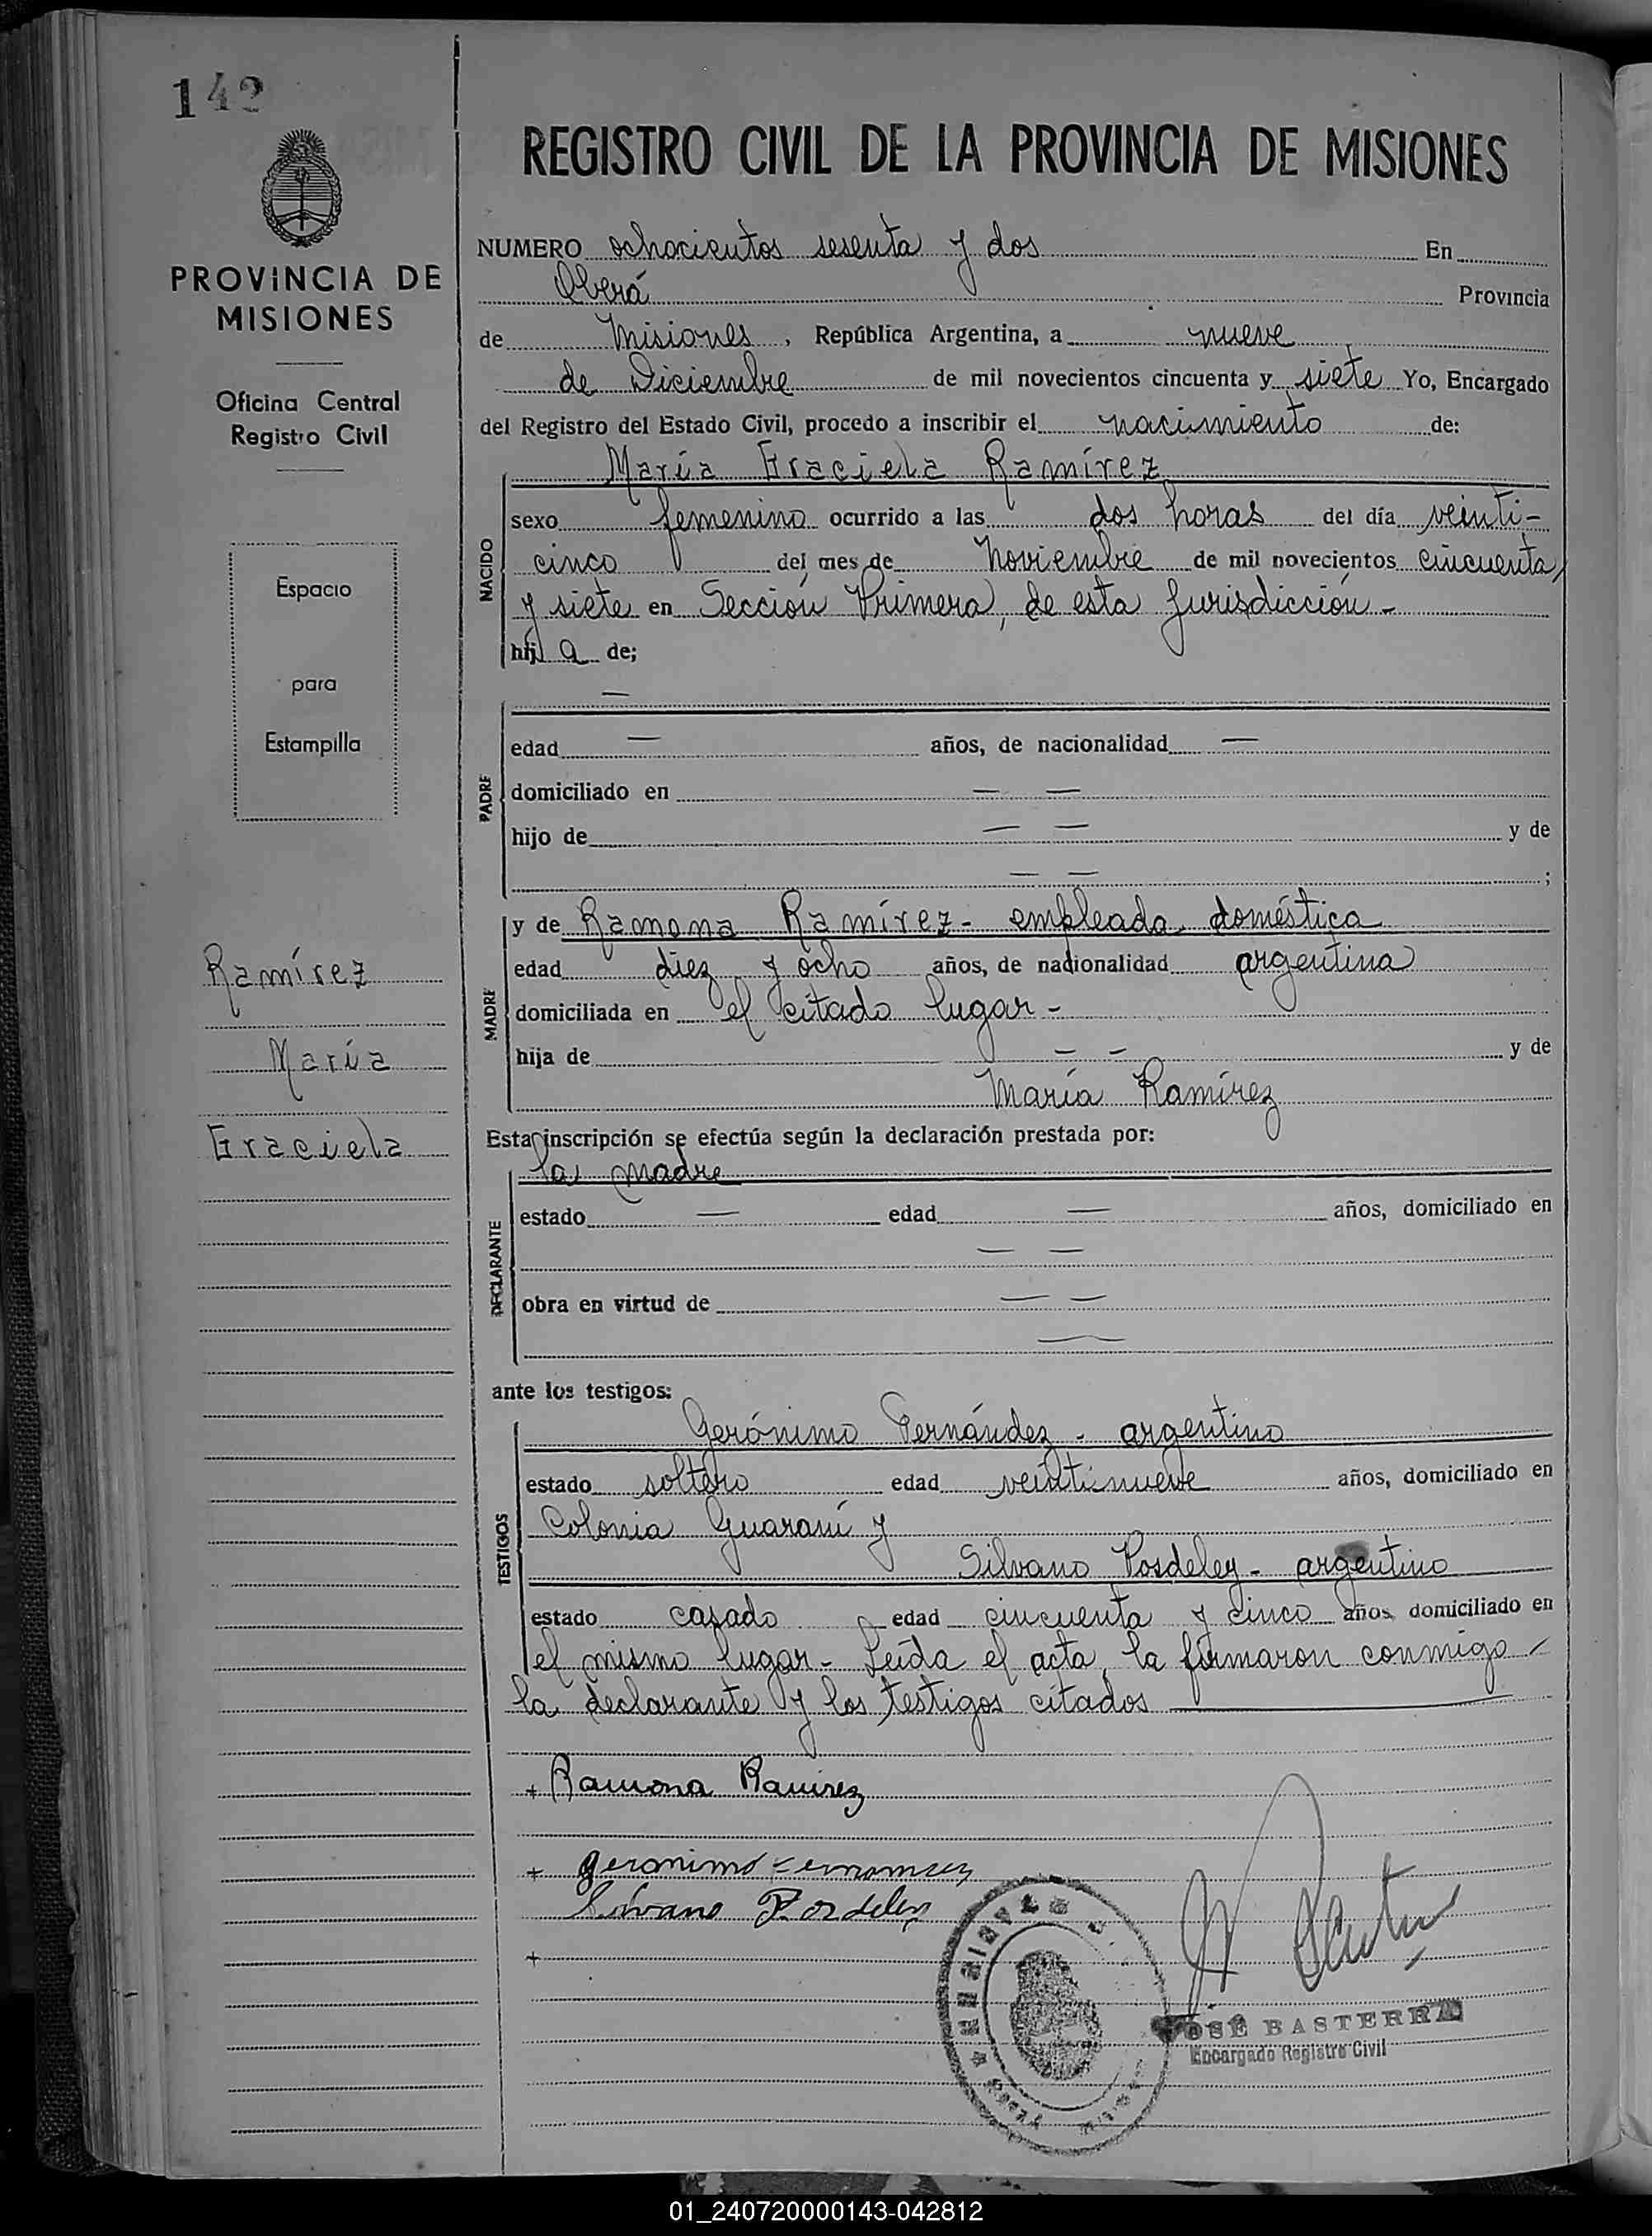 142
PROVINCIA DE
MISIONES
Oficina Central
Registro Civil
Espacio
para
Estampilla
Ramírez
María
Graciela
REGISTRO CIVIL DE LA PROVINCIA DE MISIONES
NUMERO ochocientos sesenta y dos En
Oberá Provincia
de Misiones, República Argentina, a nueve
de Diciembre de mil novecientos cincuenta y siete Yo, Encargado
del Registro del Estado Civil, procedo a inscribir el nacimiento de:
María Graciela Ramírez
NACIDO
sexo femenino ocurrido a las dos horas del día veinti-
cinco del mes de Noviembre de mil novecientos cincuenta
y siete en Sección Primera, de esta Jurisdicción -
hij a de;
—
PADRE
edad — años, de nacionalidad —
domiciliado en — —
hijo de — — y de
— — ;
MADRE
y de Ramona Ramírez - empleada doméstica
edad diez y ocho años, de nacionalidad argentina
domiciliada en el citado lugar -
hija de — — y de
María Ramírez
Esta inscripción se efectúa según la declaración prestada por:
la madre
DECLARANTE
estado — edad — años, domiciliado en
— —
obra en virtud de — —
—
ante los testigos:
TESTIGOS
Gerónimo Fernández - argentino
estado soltero edad veintinueve años, domiciliado en
Colonia Guaraní y
Silvano Posdeley - argentino
estado casado edad cincuenta y cinco años, domiciliado en
el mismo lugar - Leída el acta, la firmaron conmigo
la declarante y los testigos citados
+ Ramona Ramirez
+ geronimo
Posdeley
+
JOSÉ BASTERRA
Encargado Registro Civil
01_240720000143-042812